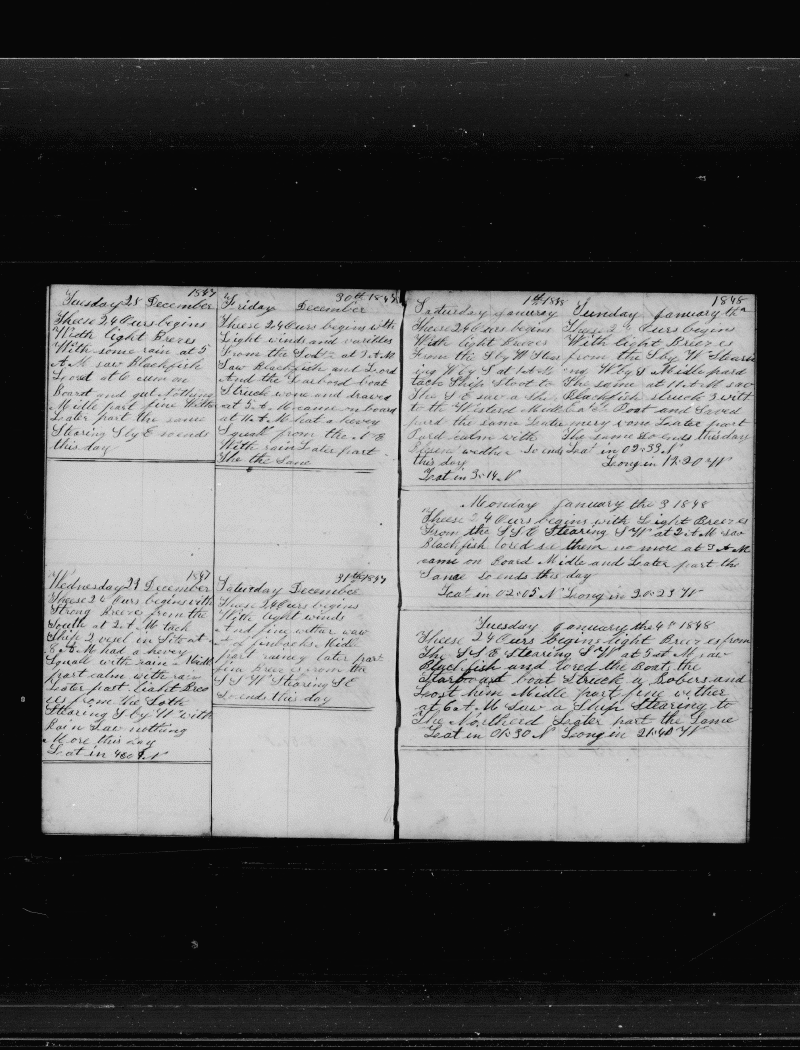 1847
Tuesday 28 December
Theese 24 Ours begins
With light Brees
With some rain at 5
A M saw Blackfish
Lord at 6 cum on
Board and gut Nothing
Midle part fine Wither
Later part the same
Stearing S by E so ends
this day
1847
Wednesday 29 December
Theese 24 Ours begins with
Strong Breeve from the
South at 2 A M tack
Ship 2 vesel in Site at
8 A M had a hevey
Squall with rain Midle
part calm with rain
Later part light Bree
es from the Sothe
Stearing S by W with
Rain Saw nothing
More this day
Leat in
30th 1847
Friday December
Theese 24 Ours begins with
Light winds and varibles
From the at 2 A M
Saw Blackfish and Lord
And the Larbord boat
Struck wone and
at 5 A M came on board
at 11 A M had a hevey
Squall from the N E
With rain Later part
The the Same
31 th 1847
Saturday December
Theese 24 Ours begins
With light winds
And fine wither saw
finbacks Midle
part rainey later part
fine Breeves from the
S S W Stearing S E
So ends this day
1th 1848
Saturday january
Theese 24 Ours begins
With light Breeves
From the S by W Stear
ing W by S at 1 A M
tack Ship Stoot to
The S E saw a Ship
to the Westerd Midle
pard the same Later
Pard calm with
wether So ends
this day
Leat in 3=14 N
1848
Sunday january th
Theese 24 Ours begins
With light Breeves
from the S by W Stearin
ing W by S Midle pard
The same at 11 A M saw
Blackfish struck 3 with
Boat and Saved
wone Later part
The same So ends this day
Leat in 02=39 N
Leong in 19=20 W
Monday january the 3 1848
Theese 24 Ours begins with Light Breeves
From the S S E Stearing S W at 2 A M saw
Blackfish lored see them no more at 3 A M
came on Board Midle and Leater part the
Same So ends this day
Leat in 02=05 N Leong in 20=23 W
Tuesday january the 4th 1848
Theese 24 Ours begins light Breeves from
The S S E Stearing S W at 5 at M saw
Blackfish and lored the Boat the
Starboard boat Struck a Robers and
Lost him Midle part fine wither
at 6 A M Saw a Ship Stearing to
The Northerd Leater part the Same
Leat in 01=30 N Leong in 21=40 W